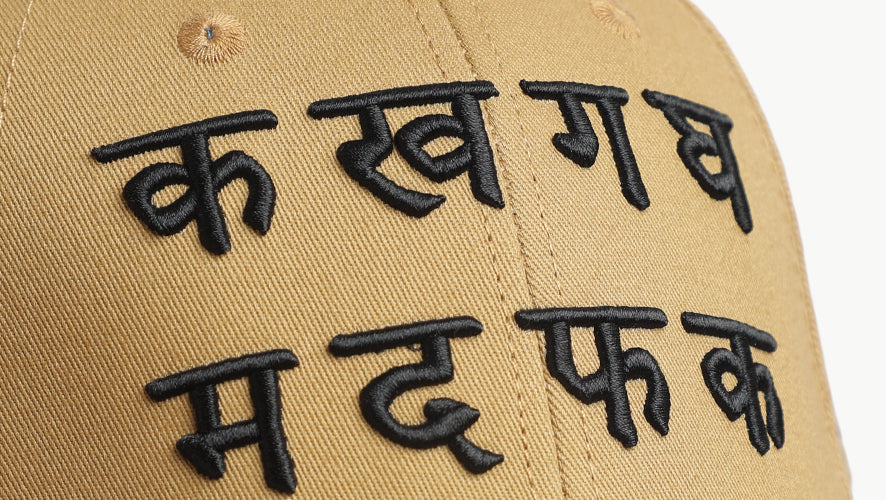 क ख ग घ
म द फ क